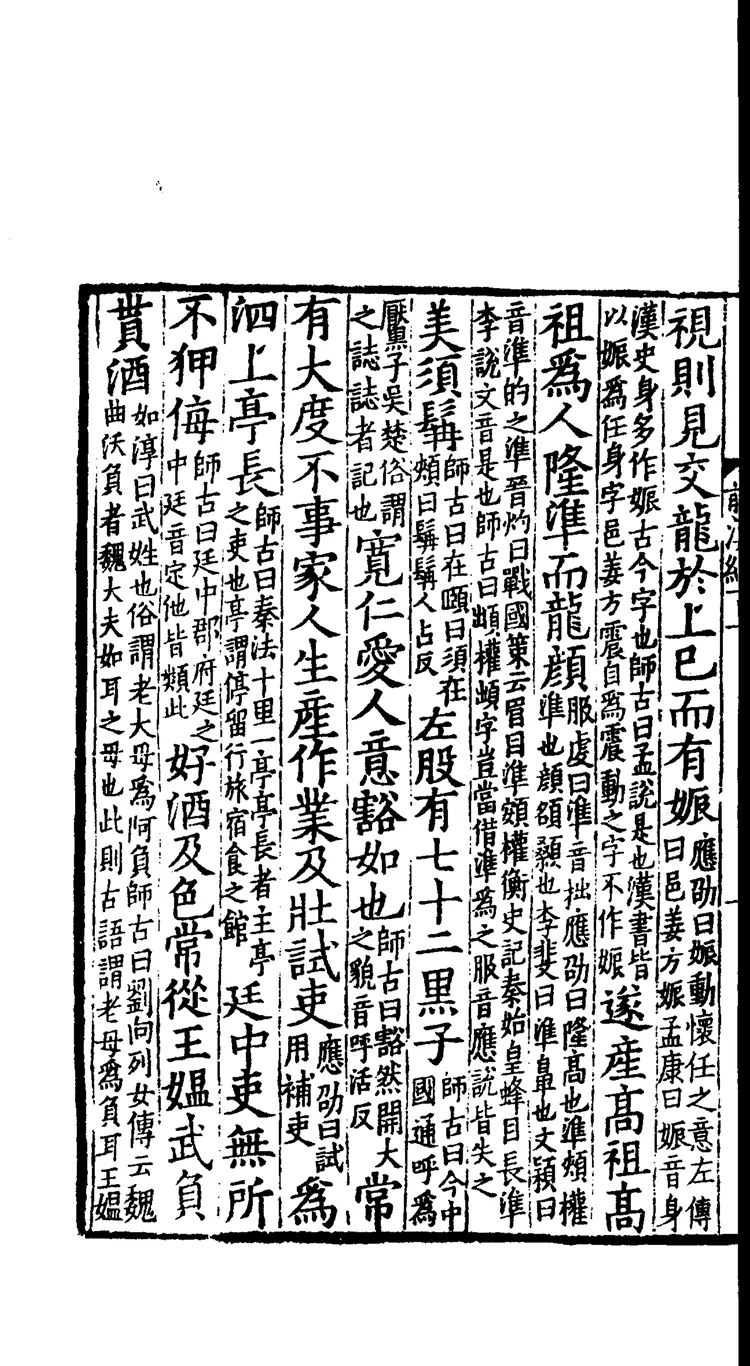 視則見交龍於上已而有娠應劭曰娠動懷任之意左傳曰邑姜方娠孟康曰娠音身
漢史身多作娠古今字也師古曰孟說是也漢書皆以娠爲任身字邑姜方震自爲震動之字不作娠遂産髙祖髙
祖爲人隆準而龍顔服虔曰準音拙應劭曰隆髙也準頰權準也顔頟顙也李斐曰準鼻也文穎曰
音準的之準晉灼曰戰國策云眉目準頞權衡史記秦始皇蜂目長準李說文音是也師古曰䪼權䪼字豈當借準爲之服音應說皆失之
美須髯師古曰在頤曰須在頰曰髯髯人占反左股有七十二黒子師古曰今中國通呼爲
黶子吳楚俗謂之誌誌者記也寛仁愛人意豁如也師古曰豁然開大之貌音呼活反常
有大度不事家人生産作業及壯試吏應劭曰試用補吏爲
泗上亭長師古曰秦法十里一亭亭長者主亭之吏也亭謂停留行旅宿食之館廷中吏無所
不狎侮師古曰廷中郡府廷之中廷音定他皆類此好酒及色常從王媼武負
貰酒如淳曰武姓也俗謂老大母爲阿負師古曰劉向列女傳云魏曲沃負者魏大夫如耳之母也此則古語謂老母爲負耳王媼